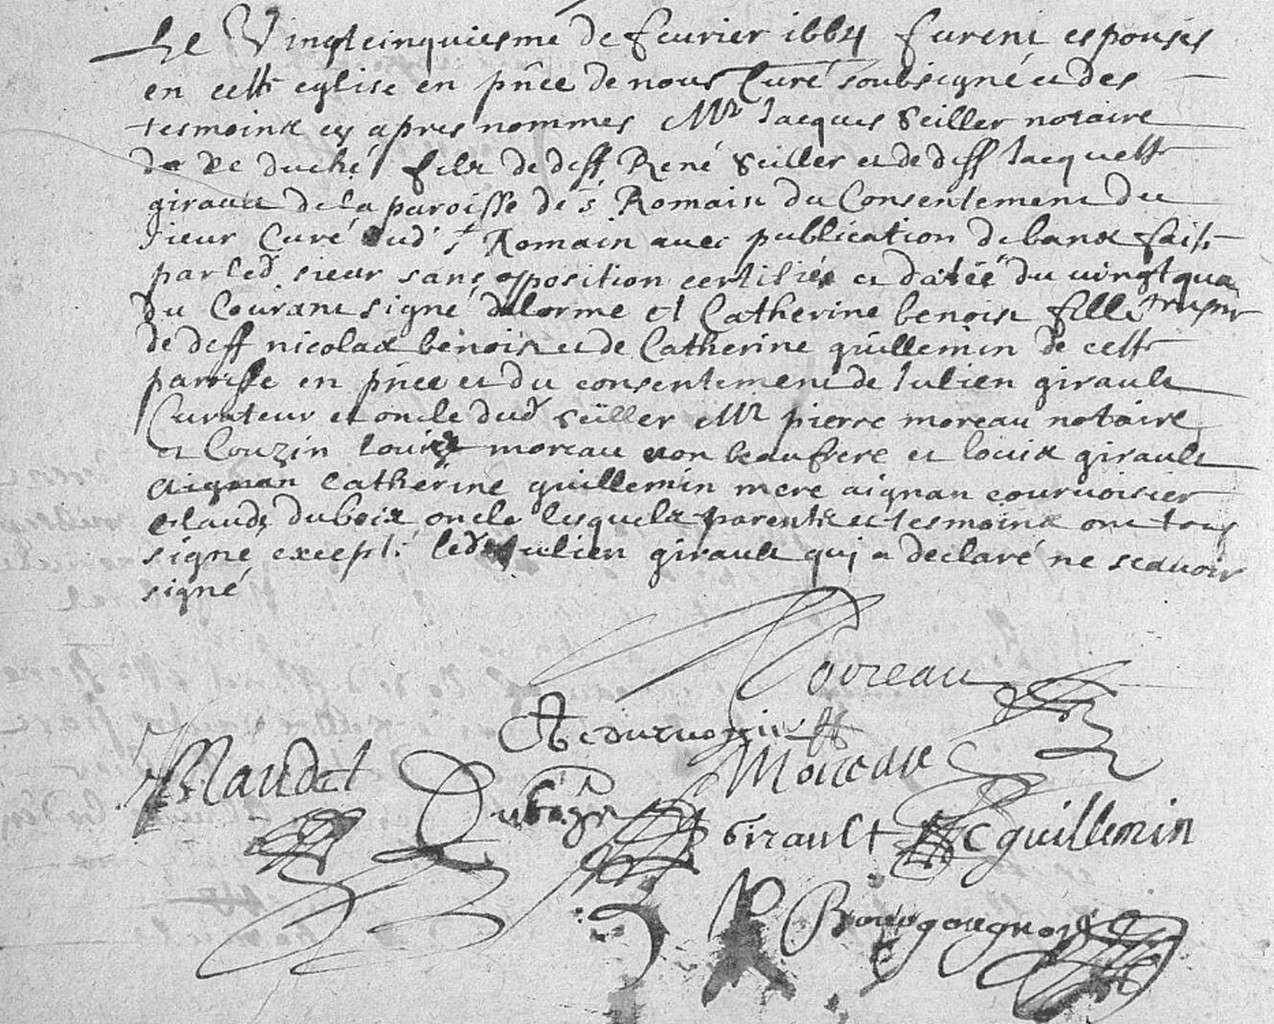 Le Vingtcinquiesme de feuvrier 1664 furent espousés
en cette eglise en pnce de nous Curé soubsigné et des
tesmoins cy apres nommes Mr Jacques Seiller notaire
de duché filz de deff René Seiller et de deff Jacquette
girault de la paroisse de s Romain du Consentement du
sieur Curé dud st Romain avec publication de bans faite
par led sieur sans opposition certifiée et datée du vingt qua
du Courant signé delorme et Catherine benoist fille
de deff nicolas benoist et de Catherine guillemin de cette
parroisse en pnce et du consentement de Julien girault
Curateur et oncle dud Seiller Mr pierre moreau notaire
et Couzin Louis moreau son beaufrere et Louis girault
aignan Catherine guillemin mere aignan courvoisier
Claude dubois oncle lesquels parents et tesmoins ont tous
signé excepté led Julien girault qui a declaré ne scavoir
signé
Moreau
A Courvoysier
Moreau
Claude Duboys
Girault C guillemin
Bourgougnon